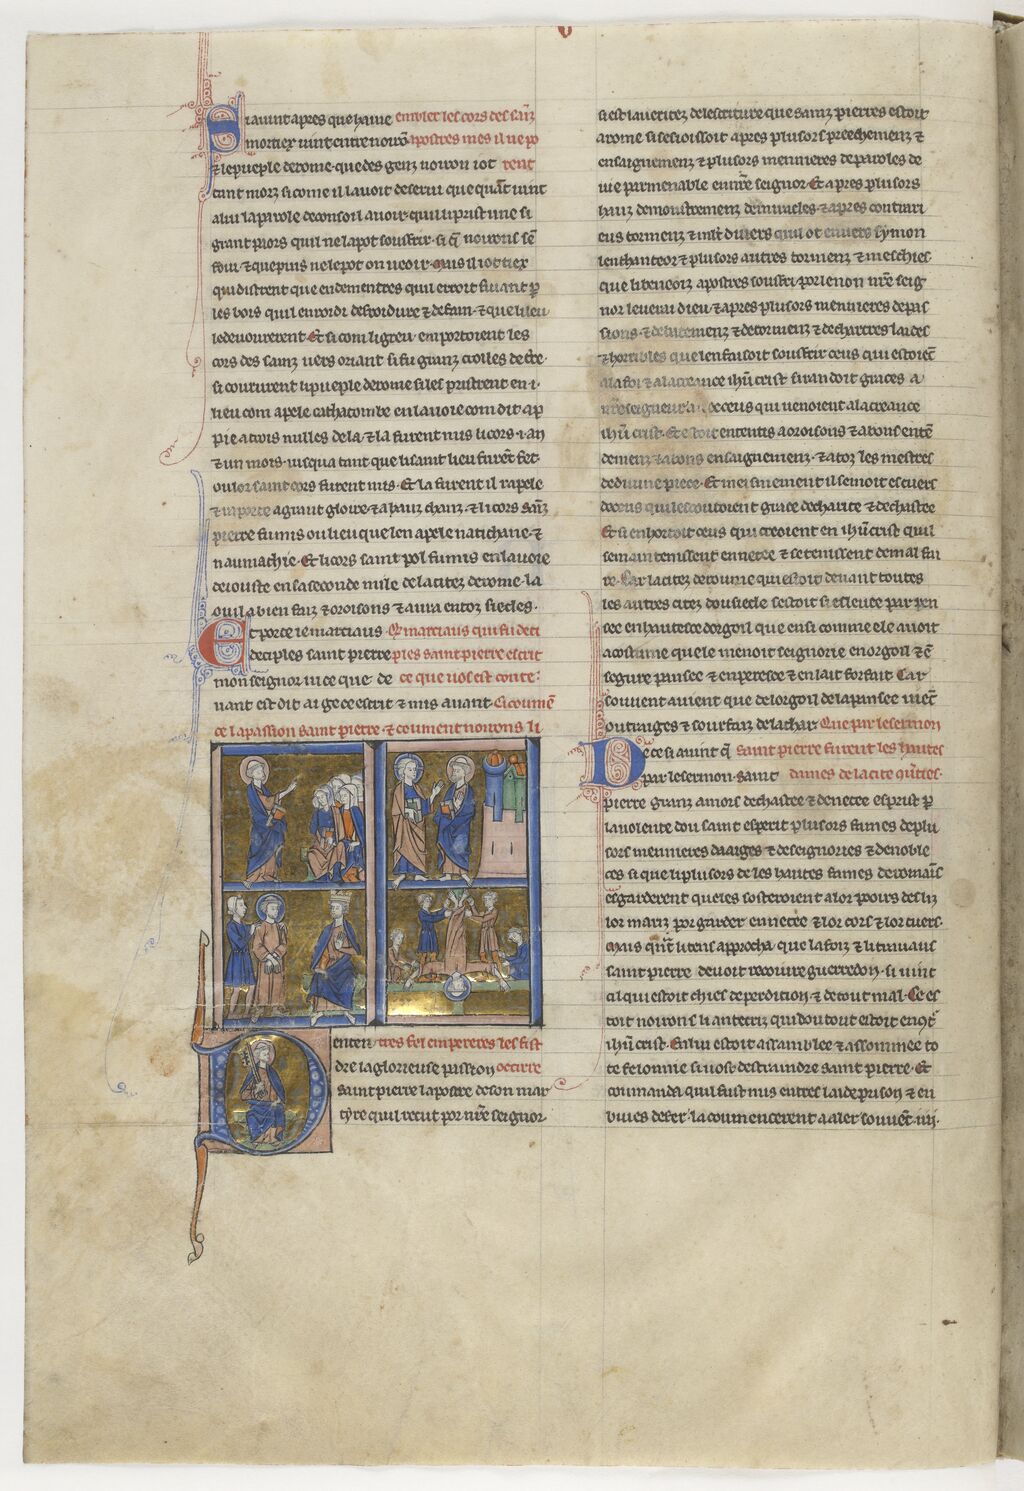 mortiex vint entre noirō apostres mes il ne po
& le pueple de rome que des genz noiron iot rent
tant morz si come il lavoit deservi que quāt vint
a lui la parole
grant priors quil ne la pot souffrir
qui distrent que endementres quil erroit fuiant p
les bois quil enroidi de froidure & de fain & que li leu
le devourerent Et si com li greu emportoient les
cors des sainz vers oriant si fu granz croiles de tr̄e
si coururent li pueple de rome si les pristrent en .i.
lieu com apele cathacombe en la voie com dit ap
pie a trois milles de la & la furent mis li cors .i. an
& vii mois iusqua tant que li saint lieu furēt fet
ou lor saint cors furent mis Et la furent il rapele
& raporte a grant gloire & a hauz chanz & li cors saīz
pierre fu mis ou lieu que len apele natichane &
naumachie Et li cors saint pol fu mis en la voie
de iouste en la seconde mile de la citez de rome la
ou il a bien faiz & oroisons & aura en toz siecles
Et porce ie marciaus Q marciaus qui fu deci
deciples saint pierre ples saint pierre escrit
mon seignor ai ce que de ce que vos est conte
vant est dit ai ge ce escrit & mis avant Ci coumē
ce la passion saint pierre & coument noirons li
Denten tres fel empereres les fist
dre la glorieuse passion ocirre
saint pierre lapostre de son mar
tyre quil recut por nr̄e seignor
si est la veritez de lescriture que sainz pierres estoit
a rome si sesioissoit apres plusors preechemenz &
ensaignemenz & plusors mennieres de paroles de
vie parmenable en nr̄e seignor Et apres plusors
hauz demoustremenz de miracles & apres contrari
eus tormenz & divers quil ot envers symon
lenchanteor & plusors autres tormenz & meschies
que li beneoiz apostres souffri por le non nr̄e seig
nor le verai dieu & apres plusors mennieres de pas
sions & de batemenz & de tormenz & de chartres laides
& horribles que len faisoit souffrir ceus qui estoiēt
a la foi & a la creance ihū crist si randoit graces a
nr̄e seigneur de ceus qui venoient a la creance
ihū crist Et estoit ententis a oroisons & a bons entē
demenz & a bons ensaignemenz & a toz les mestres
de divine piece Et meismement il semoit es cuers
de ceus qui lescoutoient grace de charite & de chastee
Et si enhortoit ceus qui creoient en ihū crist quil
se maintenissent en netee & se tenissent de mal fai
re Car la citez de roume qui estoit devant toutes
les autres citez dou siecle sestoit si eslevee par pen
see en hautesce dorgoil que ensi comme ele avoit
a coustume quele menoit seignorie en orgoil & ē
segure pansee & en peresce & en lait forfait Car
souvent avient que de lorgoil de la pansee viēt
outraiges & sourfaiz de la char Que par le sermon
De ce si avint q̄ saint pierre furent les hautes
par le sermon saint dames de la cite q̄ues
pierre granz amors de chastee & de netee esprist p
la volente dou saint esperit plusors fames de plu
sors mennieres daaiges & de seignories & de noble
ces si que li plusors de les hautes fames de romaīs
esgarderent queles sosteroient a lor pooirs des liz
lor mariz por garder en netee & lor cors & lor cuers
Mais qn̄t li tens approcha que la foiz & li travaus
saint pierre devoit recoivre guerredon si vint
cil qui estoit chies de perdition & de tout mal Ce es
toit noirons li antecriz qui dou tout estoit
ihū crist En lui estoit assamblee & assommee to
te felonnie si vost destraindre saint pierre Et
coumanda quil fust mis entres laide prison & en
buies de fer la coumencerent a aler souvēt .iiij.